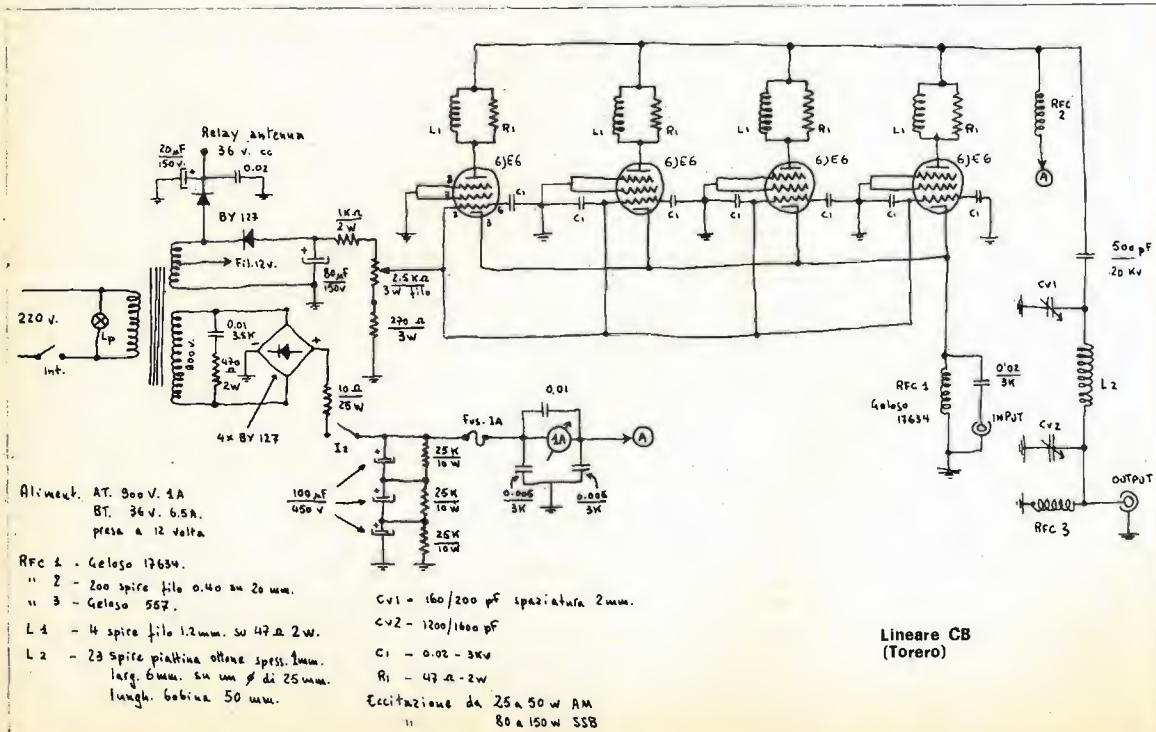 Relay antenna
36 v. cc
20µF
150v.
0.02
BY 127
Fil.12v.
1KΩ
2W
80µF
150V
2.5KΩ
3W filo
270 Ω
3W
220 v.
Lp
Int.
0.01
3.5K
470
Ω
2W
4x BY 127
10 Ω
25W
I2
100µF
450V
25K
10W
25K
10W
25K
10W
Fus. 1A
0.01
1A
A
0.005
3K
0.005
3K
L1
R1
6JE6
C1
L1
R1
6JE6
C1
C1
L1
R1
6JE6
C1
C1
L1
R1
6JE6
C1
C1
RFC
2
A
500 pF
20 Kv
Cv1
L2
Cv2
OUTPUT
RFC 3
RFC 1
Geloso
17634
0'02
3K
INPUT
Aliment. AT. 900 V. 1A
BT. 36 V. 6.5A.
presa a 12 volta
RFC 1 - Geloso 17634.
" 2 - 200 spire filo 0.40 su 20 mm.
" 3 - Geloso 557.
L 1 - 4 spire filo 1.2mm. su 47 Ω 2W.
L 2 - 23 spire piattina ottone spess. 1mm.
larg. 6mm. su un ϕ di 25mm.
lungh. bobina 50 mm.
Cv1 - 160/200 pF spaziatura 2mm.
Cv2 - 1200/1600 pF
C1 - 0.02 - 3Kv
R1 - 47 Ω - 2W
Eccitazione da 25 a 50 W AM
" 80 a 150 W SSB
Lineare CB
(Torero)